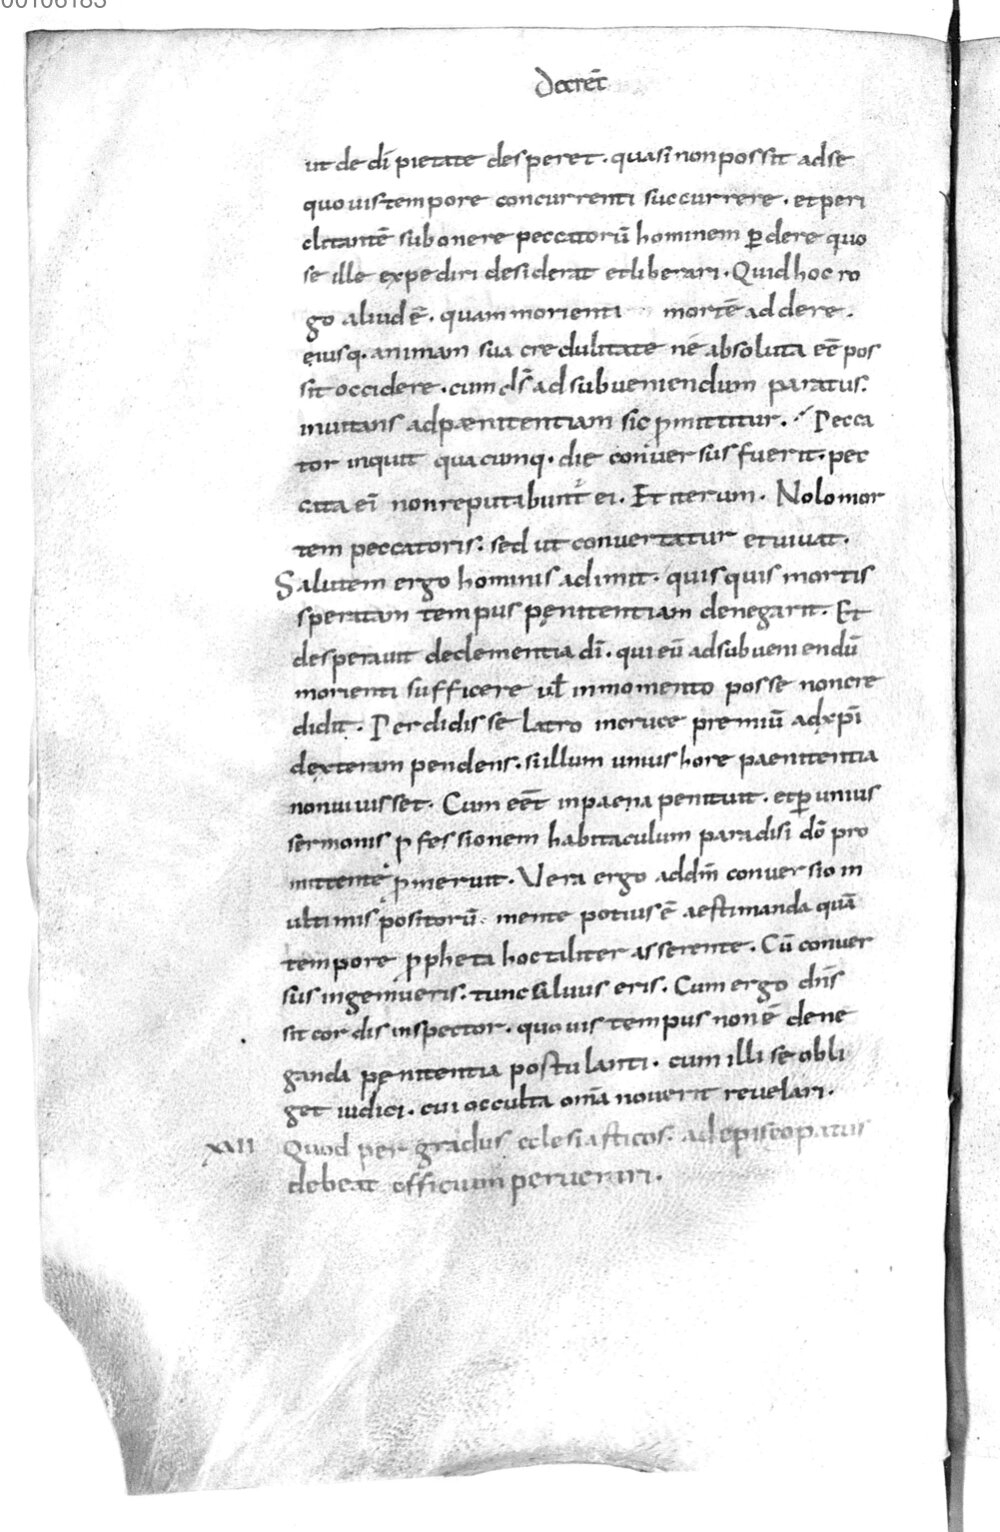 00106183
Decret̄
ut de dī pietate desperet. quasi non possit ad se
quo uis tempore concurrenti succurrere. et peri
clitantē sub onere peccatorū hominem p̱dere quo
se ille expediri desiderat et liberari. Quid hoc ro
go aliud ē. quam morienti mortē addere.
eiusq. animam sua credulitate ne absoluta eē pos
sit occidere. cum ds̄ ad subueniendum paratus.
inuitans ad pænitentiam sic pmittitur. Pecca
tor inquit quacumq. die conuersus fuerit. pec
cata eī non reputabunt ei. Et iterum. Nolo mor
tem peccatoris. sed ut conuertatur et uiuat.
Salutem ergo hominis adimit. quisquis mortis
speratam tempus pęnitentiam denegarit. Et
desperauit de clementia dī. qui eū ad subueniendū
morienti sufficere ul̄ in momento posse non cre
didit. Perdidisse latro in cruce premiū ad xp̄i
dexteram pendens. si illum unius hore paenitentia
non iuuisset. Cum eēt in paena penituit. et p̱ unius
sermonis pfessionem habitaculum paradisi dō pro
mittente pmeruit. Vera ergo ad dm̄ conuersio in
ultimis positorū. mente potius ē aestimanda quā
tempore ppheta hoc taliter asserente. Cū conuer
sus ingemueris. tunc saluus eris. Cum ergo dn̄s
sit cordis inspector. quo uis tempus non ē dene
ganda pęnitentia postulanti. cum illi se obli
get iudici. cui occulta omā nouerit reuelari.
XVII Quod per gradus eclesiasticos. ad episcopatus
debeat officium peruenri.